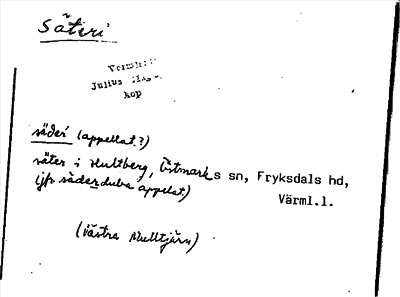 Säteri
Julius
kop
säder (appellat.?)
säter i Hultberg, Östmarks sn, Fryksdals hd,
(jfr säderduba appelat)
Värml.l.
(Västra Mulltjärn)